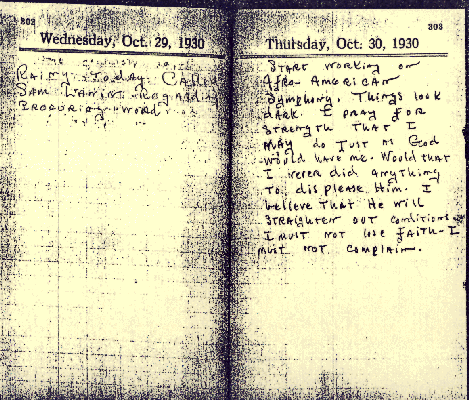 302
Wednesday, Oct. 29, 1930
Rainy today. Called
Sam Wanint Regarding
Procuring word
303
Thursday, Oct. 30, 1930
Start working on
Afro-American
Symphony. Things look
dark. I pray for
strength that I
may do just as God
would have me. Would that
I never did anything
to displease Him. I
believe that He will
straighten out conditions.
I must not lose faith - I
must not complain.